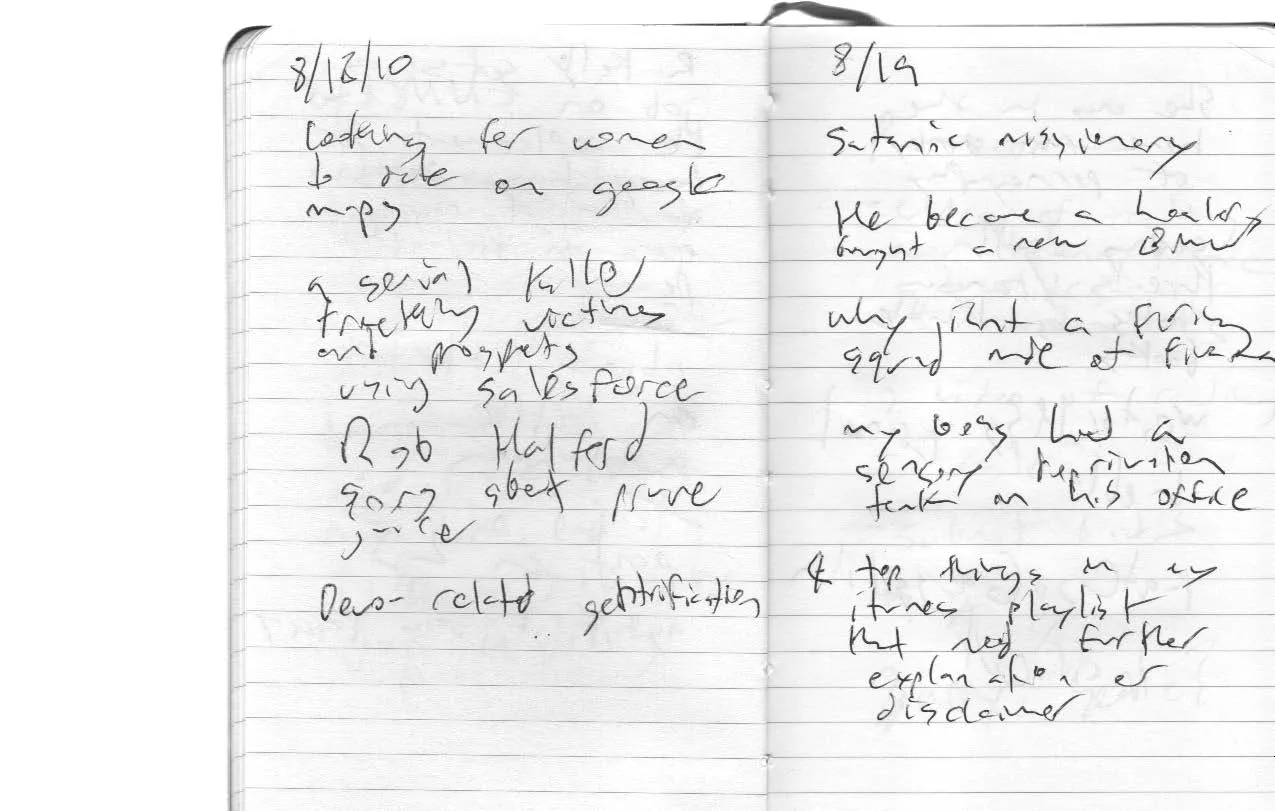 8/18/10
Looking for women
to rate on google
maps
a serial killer
tracking victims
and prospects
using salesforce
Rob Halford
song about prune
juice
Devo-related gentrification
8/19
Satanic missionary
He became a
bought a new BMW
why isn't a firing
squad made of
my boss had a
sensory deprivation
tank in his office
top things in my
itunes playlist
that need further
explanation or
disclaimer